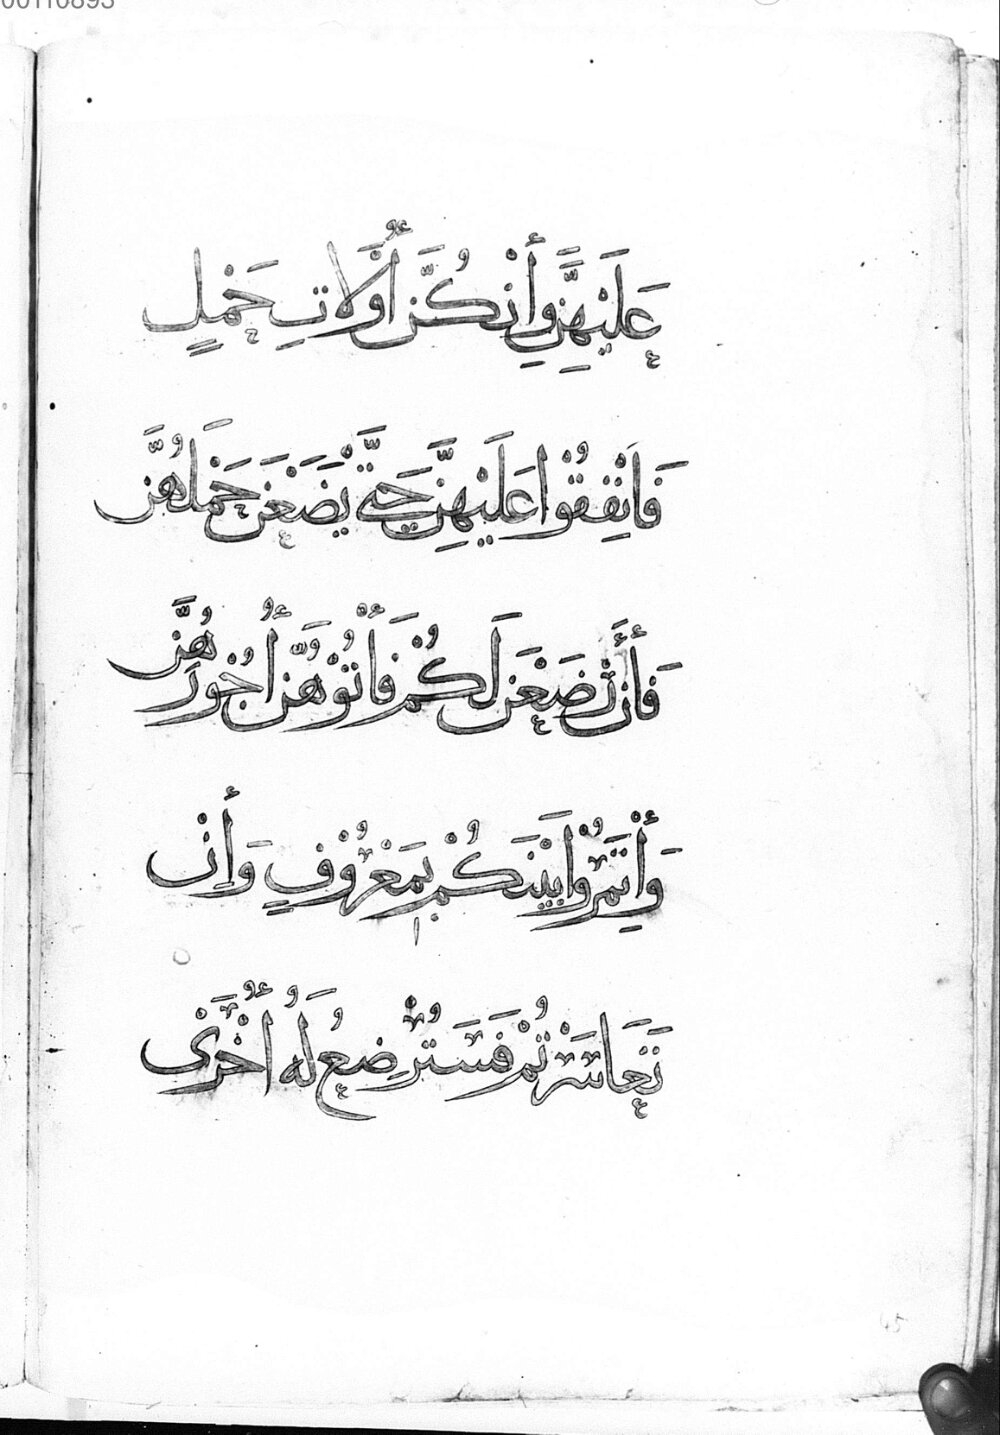 00110893
عَلَيْهِنَّ وَإِنْ كُنَّ أُولَاتِ حَمْلٍ
فَأَنْفِقُوا عَلَيْهِنَّ حَتَّى يَضَعْنَ حَمْلَهُنَّ
فَإِنْ أَرْضَعْنَ لَكُمْ فَآتُوهُنَّ أُجُورَهُنَّ
وَأْتَمِرُوا بَيْنَكُمْ بِمَعْرُوفٍ وَإِنْ
تَعَاسَرْتُمْ فَسَتُرْضِعُ لَهُ أُخْرَى
45